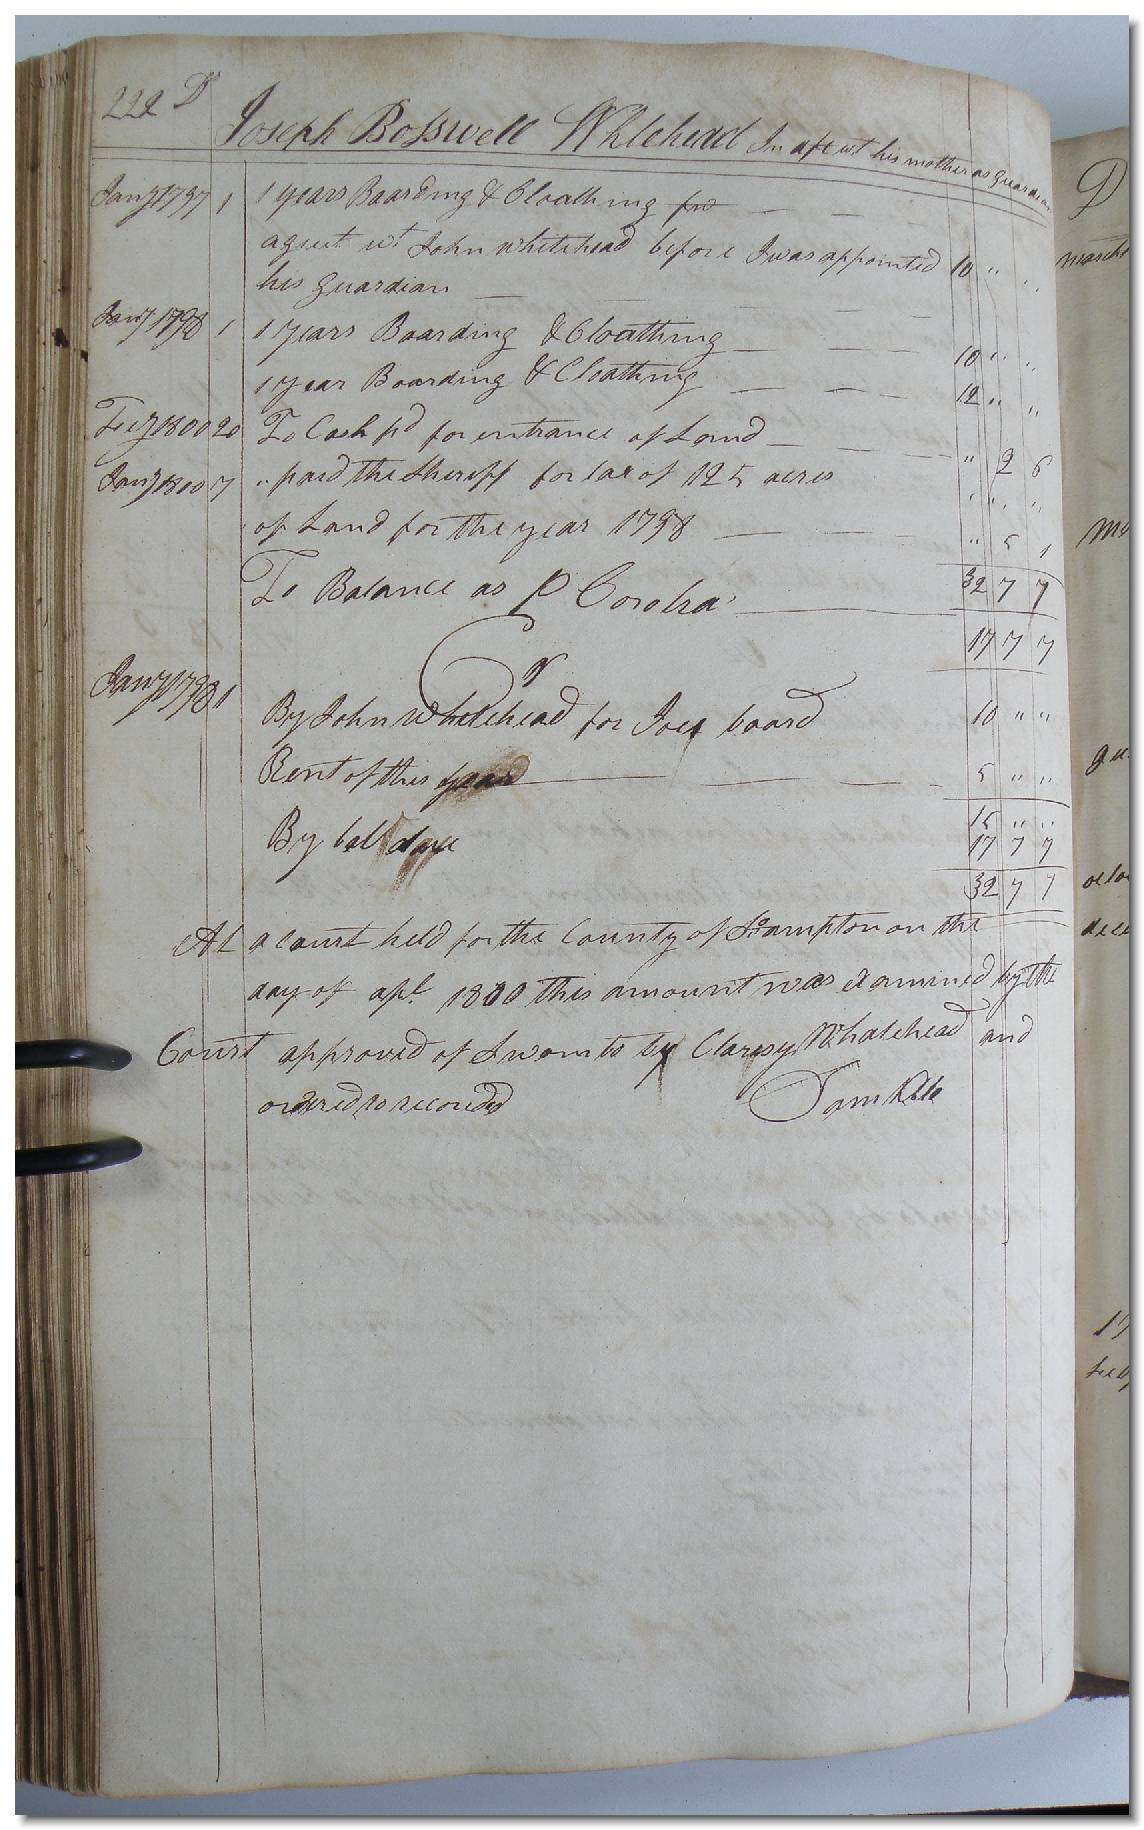 222 Dr
Joseph Bosswell Whitehead In act wt his mother as guardian
Jany 1797 1 1 years Boarding & Cloathing for
agreet wt John Whitehead before I was appointed 10 " "
his Guardian
Jany 1798 1 1 years Boarding & Cloathing 10 " "
1 year Boarding & Cloathing 12 " "
Feby 1800 20 To Cash pd for entrance of Land " 2 6
Jany 1800 7 " paid the Sheriff for tax of 125 acres " " "
of Land for the year 1798 " 5 1
32 7 7
To Balance as P Contra 17 7 7
Cr
Jany 1798 1 By John Whitehead for Joes board 10 " "
Rent of this year 5 " "
15 " "
By ball due 17 7 7
32 7 7
At a court held for the County of So.ampton on the
day of apl 1800 this amount was examined by the
Court approved of Sworn to by Clarisy Whitehead and
ordered to recorded Sam Kello
D
march